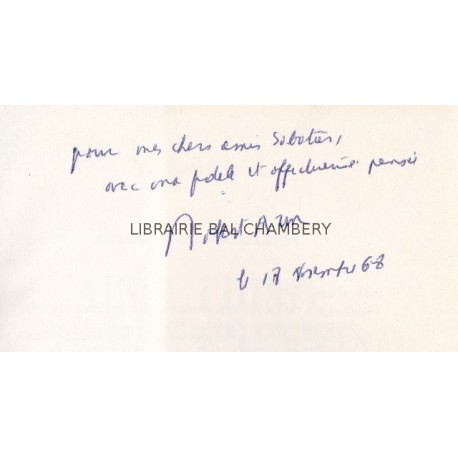 pour mes chers amis Sabatier,
avec ma fidèle et affectueuse pensée
LIBRAIRIE BAL CHAMBERY
Robert Aron
le 17 novembre 68